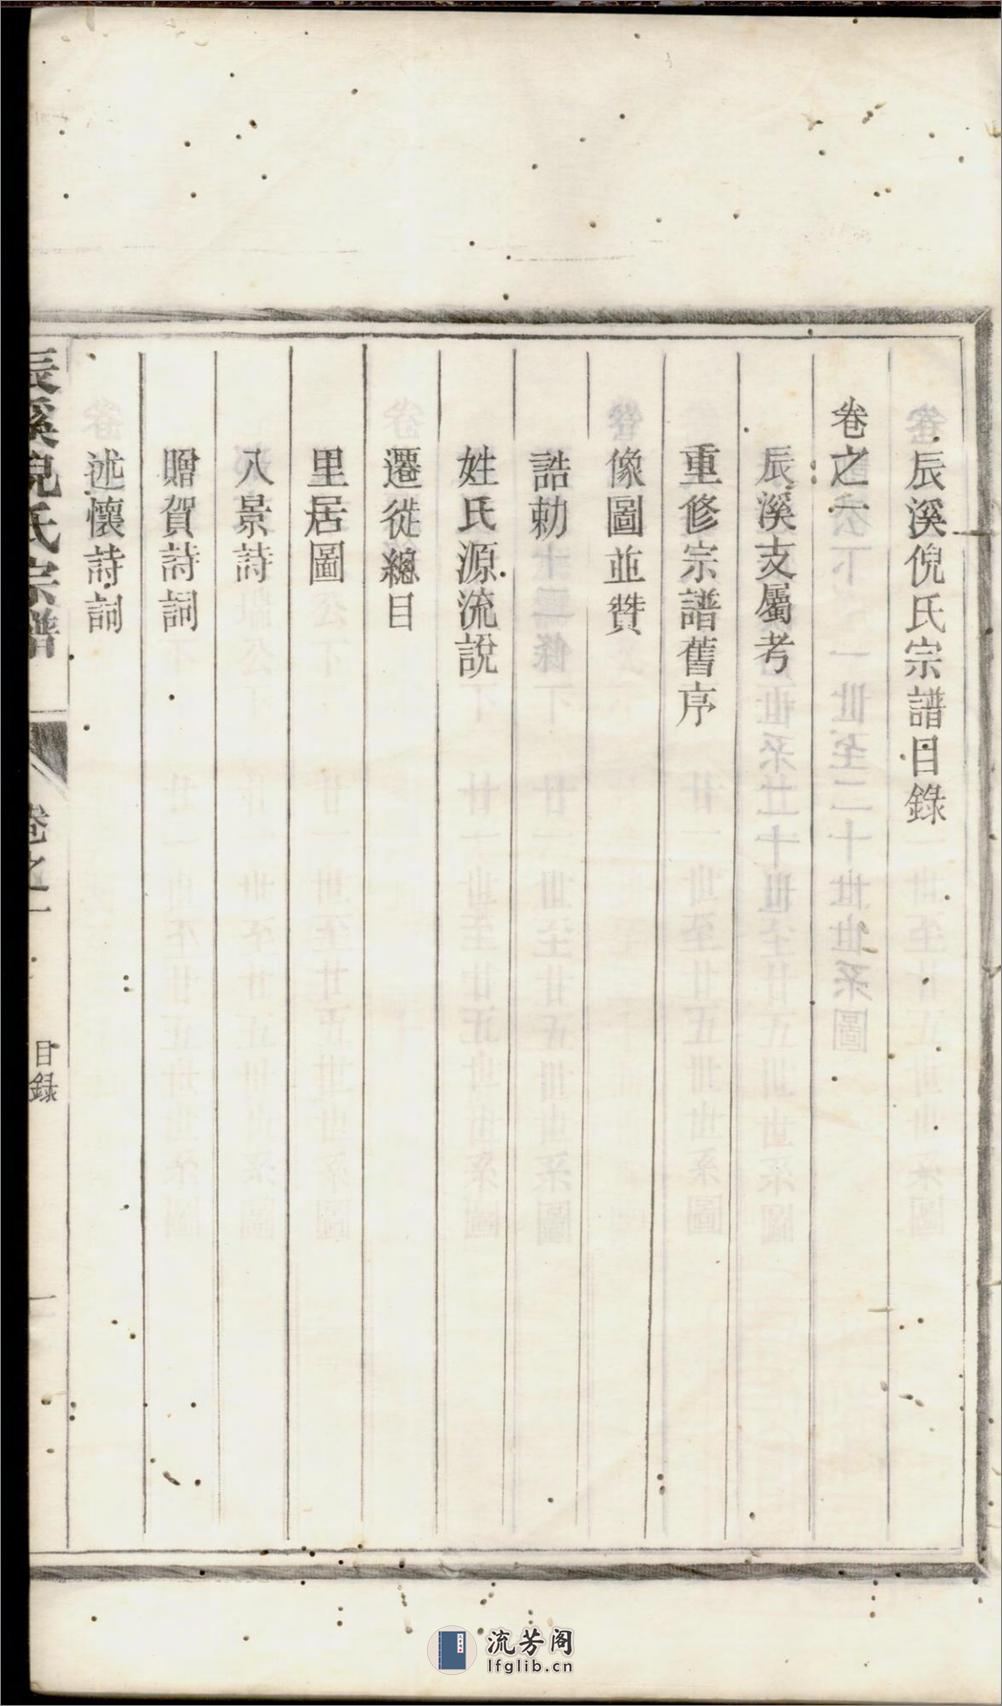 辰溪倪氏宗譜目錄
卷之一
辰溪支屬考
重修宗譜舊序
像圖並贊
誥勅
姓氏源流說
遷徙總目
里居圖
八景詩
贈賀詩詞
述懷詩詞
辰溪倪氏宗譜
卷之一
目錄
一
流芳阁
lfglib.cn